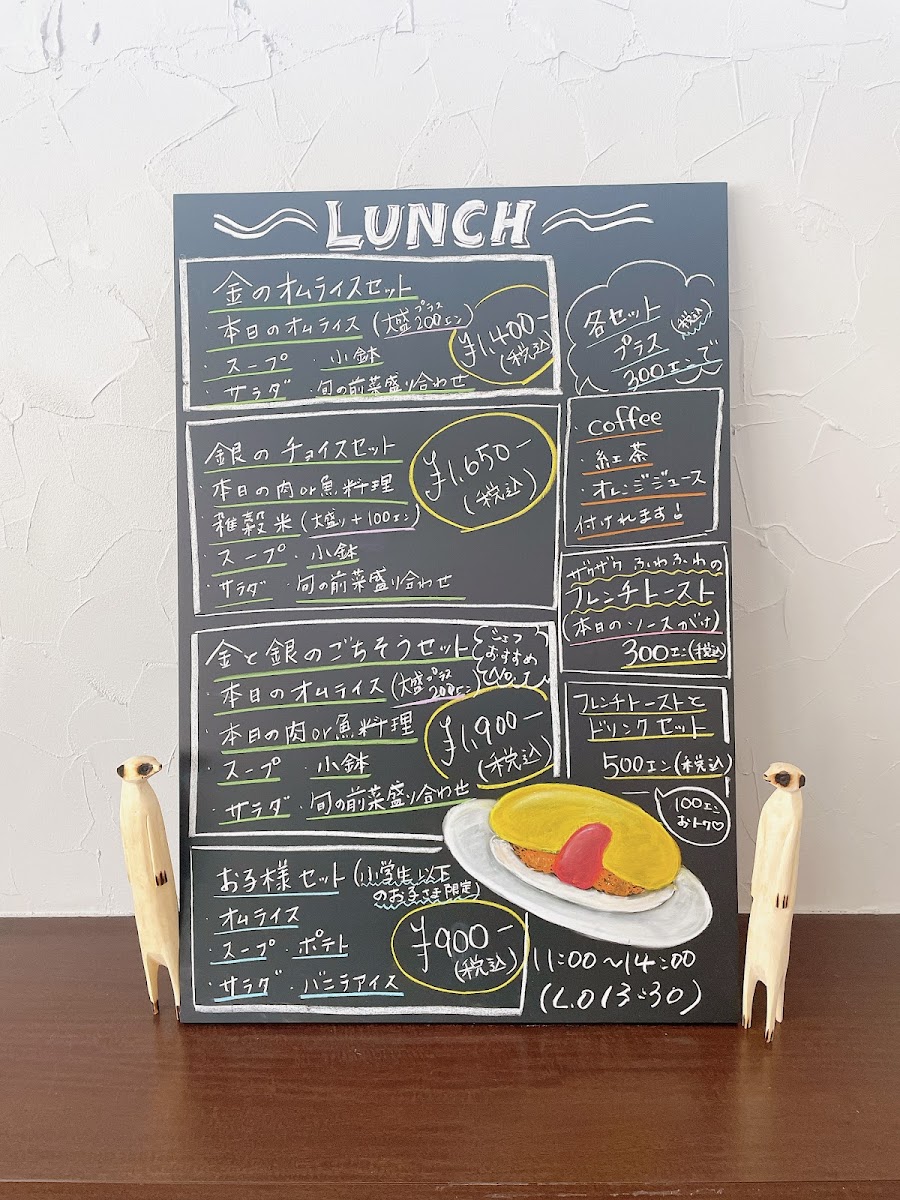 LUNCH
金のオムライスセット
・本日のオムライス (大盛プラス200エン)
・スープ ・小鉢
・サラダ ・旬の前菜盛り合わせ
¥1,400-
(税込)
銀のチョイスセット
・本日の肉or魚料理
雑穀米 (大盛り+100エン)
・スープ ・小鉢
・サラダ ・旬の前菜盛り合わせ
¥1,650-
(税込)
金と銀のごちそうセット
シェフ
おすすめ
No.1
・本日のオムライス (大盛プラス200エン)
・本日の肉or魚料理
・スープ ・小鉢
・サラダ ・旬の前菜盛り合わせ
¥1,900-
(税込)
お子様セット (小学生以下
のお子さま限定)
・オムライス
・スープ ・ポテト
・サラダ ・バニラアイス
¥900-
(税込)
各セット
プラス (税込)
300エンで
・coffee
・紅茶
・オレンジジュース
付けれます!
ザクザクふわふわの
フレンチトースト
(本日のソースがけ)
300エン(税込)
フレンチトーストと
ドリンクセット
500エン(税込)
100エン
おトク♡
11:00~14:00
(L.O13:30)